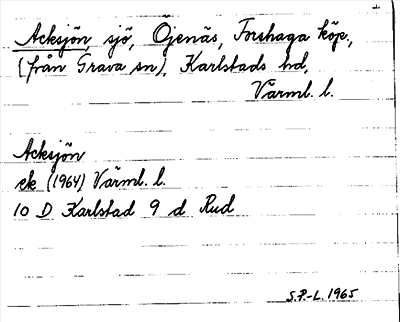 Acksjön, sjö, Öjenäs, Forshaga köp.,
(från Grava sn), Karlstads hd,
Värml. l.
Acksjön
ek (1964) Värml. l.
10 D Karlstad 9 d Rud
S.P.-L. 1965